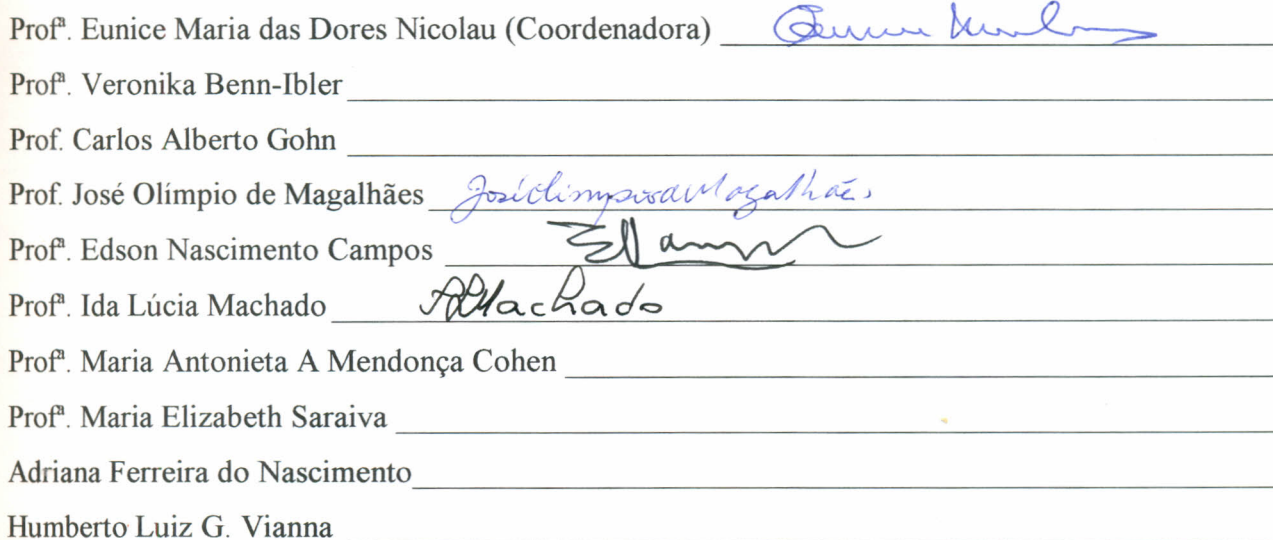 Profª. Eunice Maria das Dores Nicolau (Coordenadora)
Profª. Veronika Benn-Ibler
Prof. Carlos Alberto Gohn
Prof. José Olímpio de Magalhães JoséOlimpiodeMagalhães
Profª. Edson Nascimento Campos
Profª. Ida Lúcia Machado ILMachado
Profª. Maria Antonieta A Mendonça Cohen
Profª. Maria Elizabeth Saraiva
Adriana Ferreira do Nascimento
Humberto Luiz G. Vianna